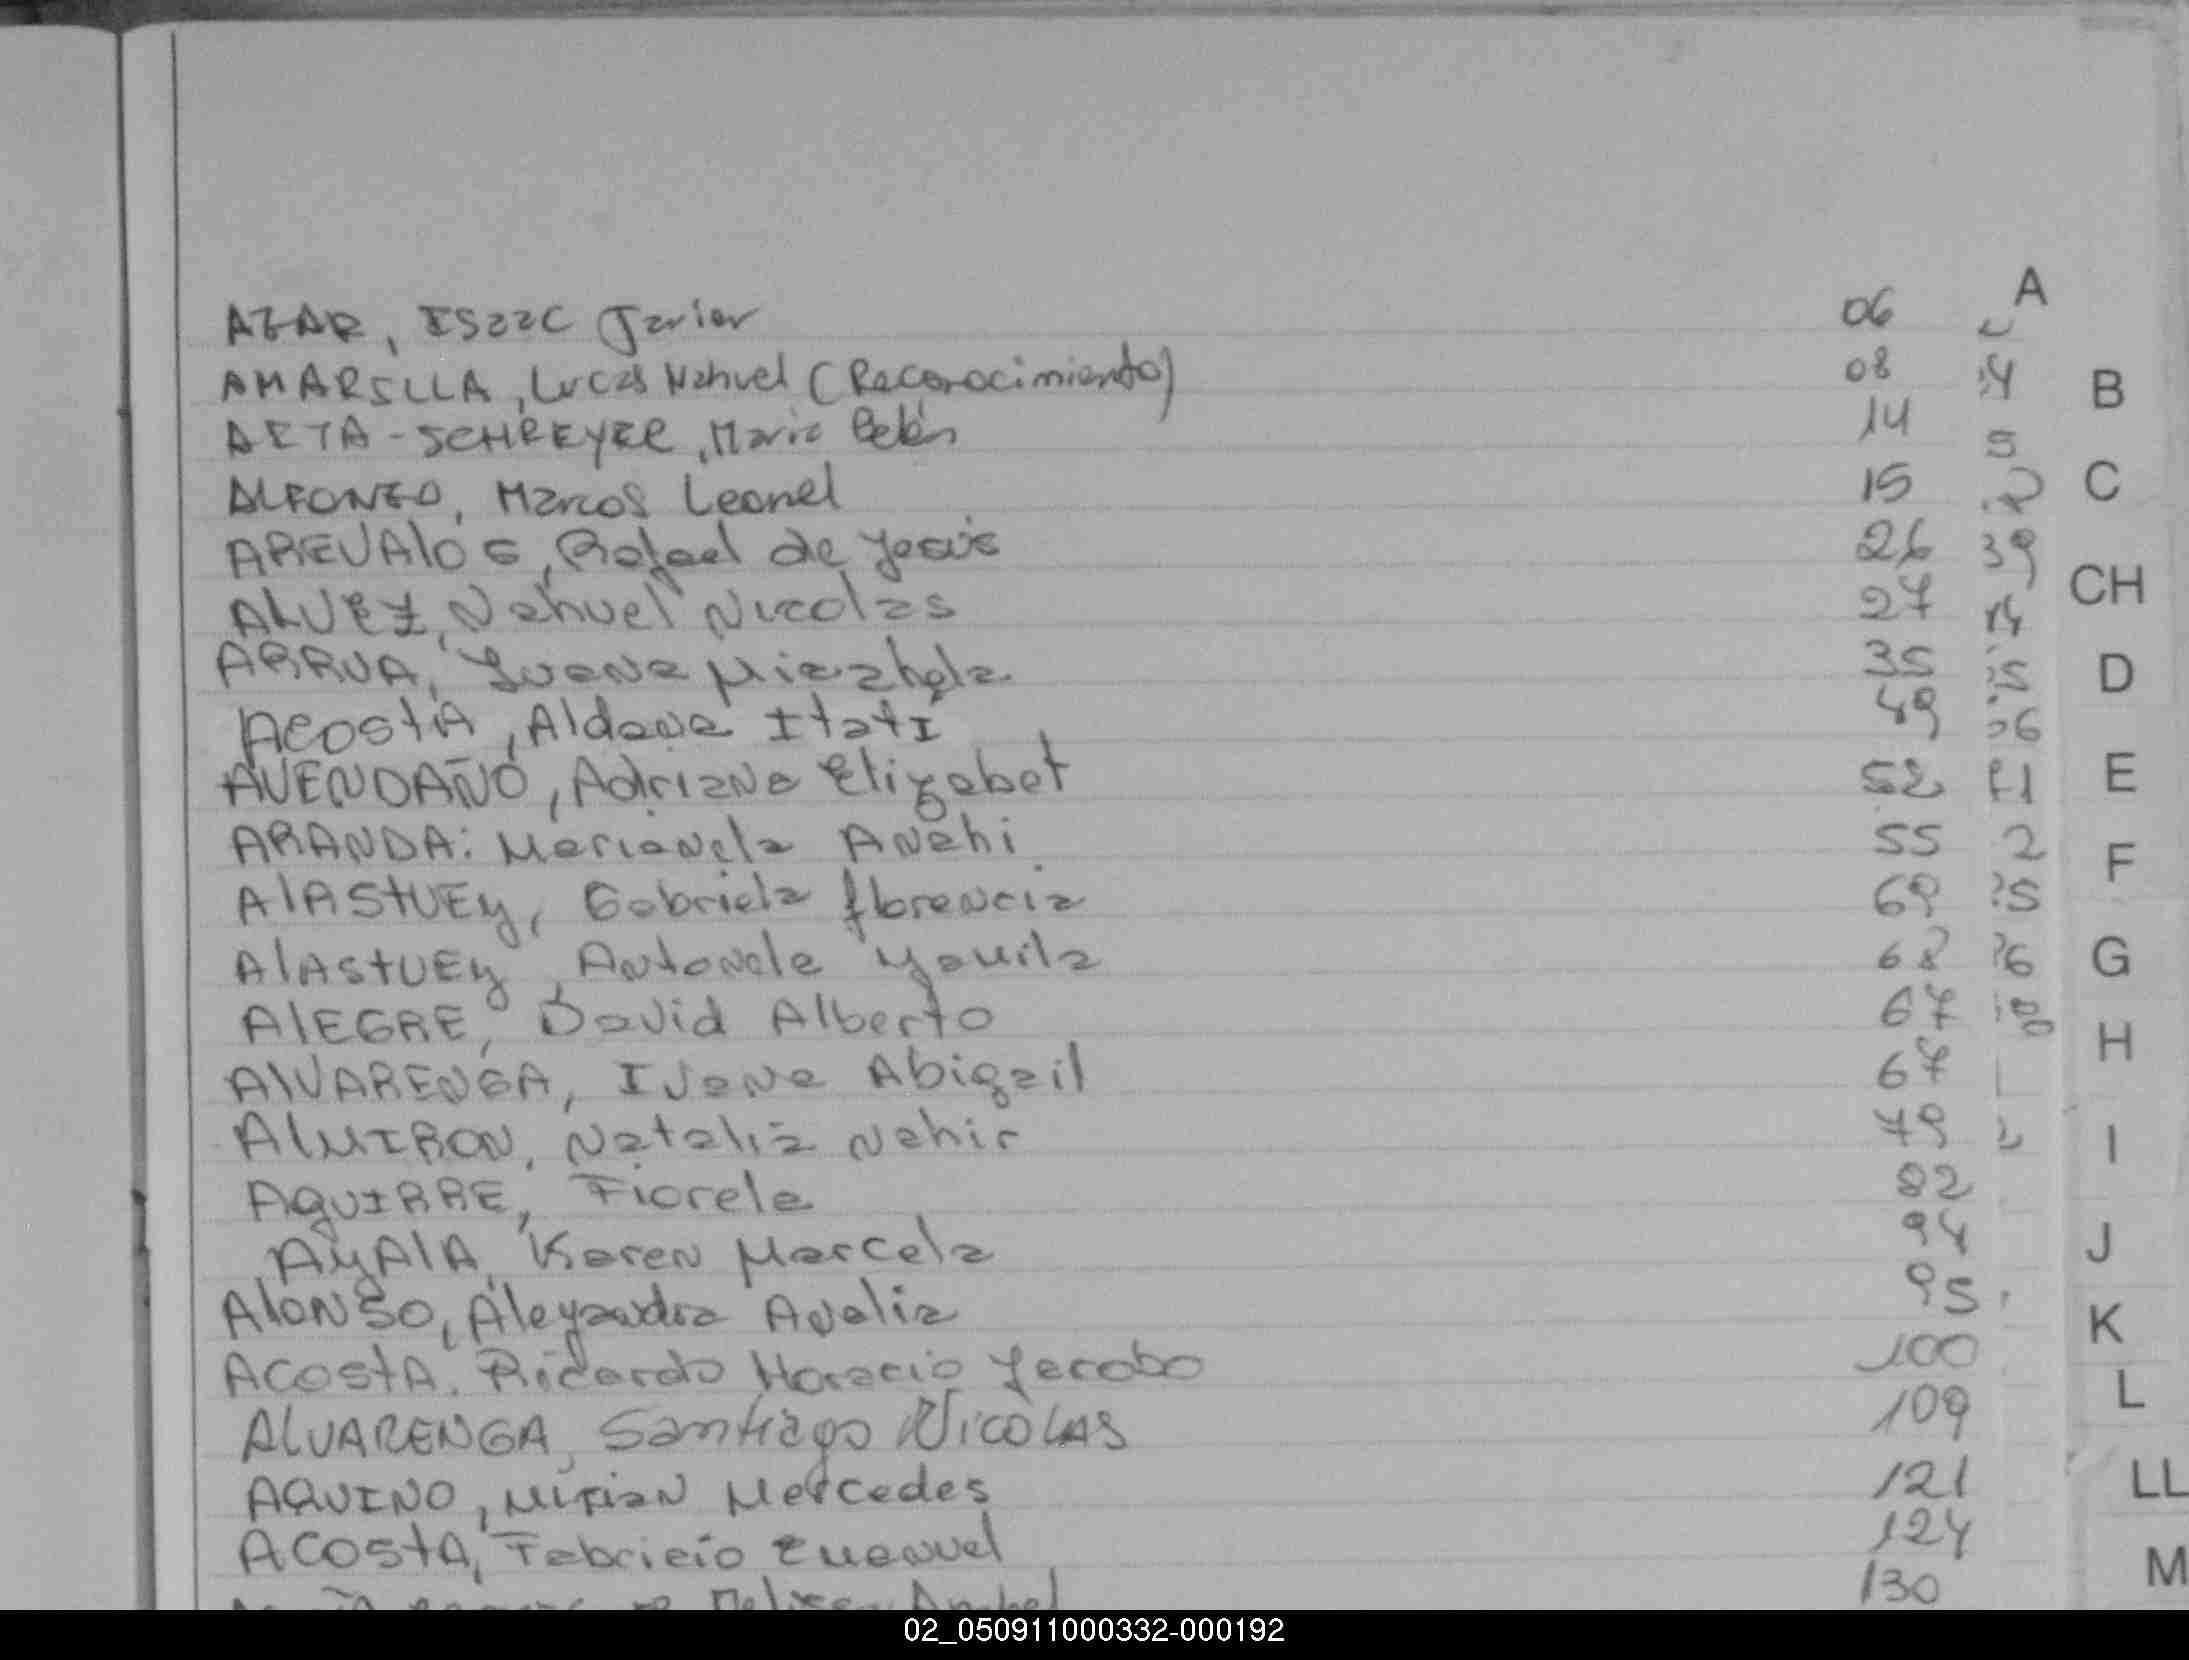 A
AZAR, ISaaC Javier 06
AMARILLA, Lucas Nahuel (Reconocimiento) 08
B
AETA-SCHREYER, Maria Belén 14
ALFONZO, Marcos Leonel 15
C
AREVALOS, Rafael de Jesús 26 39
ALVEZ, Nahuel Nicolas 27
CH
ARRUA, Luana Micahela 35
D
ACOSTA, Aldana Itatí 49
AVENDAÑO, Adriana Elizabet 52
E
ARANDA: Marianela Anahi 55 2
F
AlAStUEy, Gabriela florencia 69
AlAStUEy, Antonela Yamila 68
G
AlEGRE, David Alberto 67
H
AlVARENGA, Ivana Abigail 67
AlMIRON, Natalia Nahir 79
I
AguIRRE, Fiorela 82
AyAlA, Karen Marcela 94
J
AlonSo, Aleyandra Analia 95
K
ACostA, Ricardo Horacio Yacobo 100
L
ALVARENGA, Santiago NicoLAS 109
AQUINO, Mirian Mercedes 121
LL
ACostA, Fabricio Emanuel 124
M
130
02_050911000332-000192